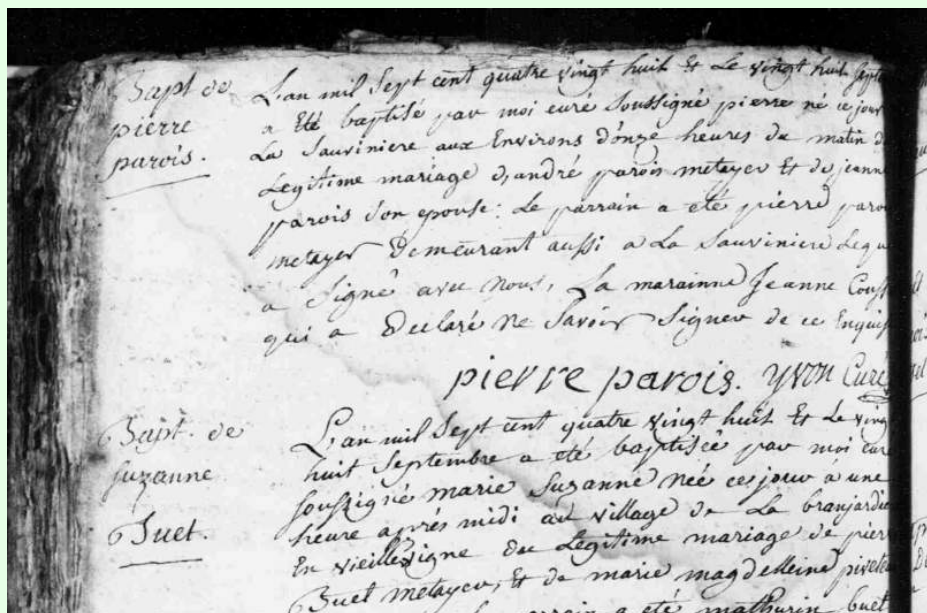 Bapt de
pierre
parois.
L'an mil Sept cent quatre vingt huit Et Le vingt huit Septe
a Eté baptisé par moi curé Soussigné pierre né ce jour
La Sauviniere aux Environs d'onze heures du matin d
Legitime mariage d'andré parois metayer Et de jeanne
parois Son epouse: Le parrain a été pierre paroi
metayer Demeurant aussi a La Sauviniere Lequ
a Signé avec Nous, La marainne Jeanne Couss
qui a Declaré Ne Savoir Signer de ce Enquis
pierre parois. yvon Curé
Bapt. de
Suzanne
Buet.
L'an mil Sept cent quatre vingt huit Et Le ving
huit Septembre a été baptisée par moi cur
Soussigné marie Suzanne Née ce jour a une
heure après midi au village de La branjardie
En vieillevigne du Legitime mariage de pierr
Buet metayer, Et de marie magdelleine pivete
parrain a été mathurin buet